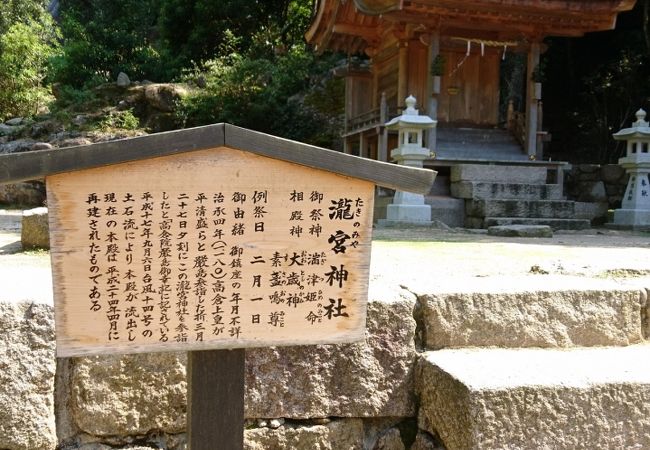 瀧宮神社
たきのみやじんじゃ
御祭神 湍津姫命
たぎつひめのみこと
相殿神 大歳神
おおとしのかみ
素盞鳴尊
すさのおのみこと
例祭日 二月一日
御由緒 御鎮座の年月不詳
治承四年(一一八〇)高倉上皇が
平清盛らと厳島参詣した折三月
二十七日夕刻にこの瀧宮神社を参詣
したと高倉院厳島御幸記に記されている
平成十七年九月六日台風十四号の
土石流により本殿が流出し
現在の本殿は平成二十四年四月に
再建されたものである